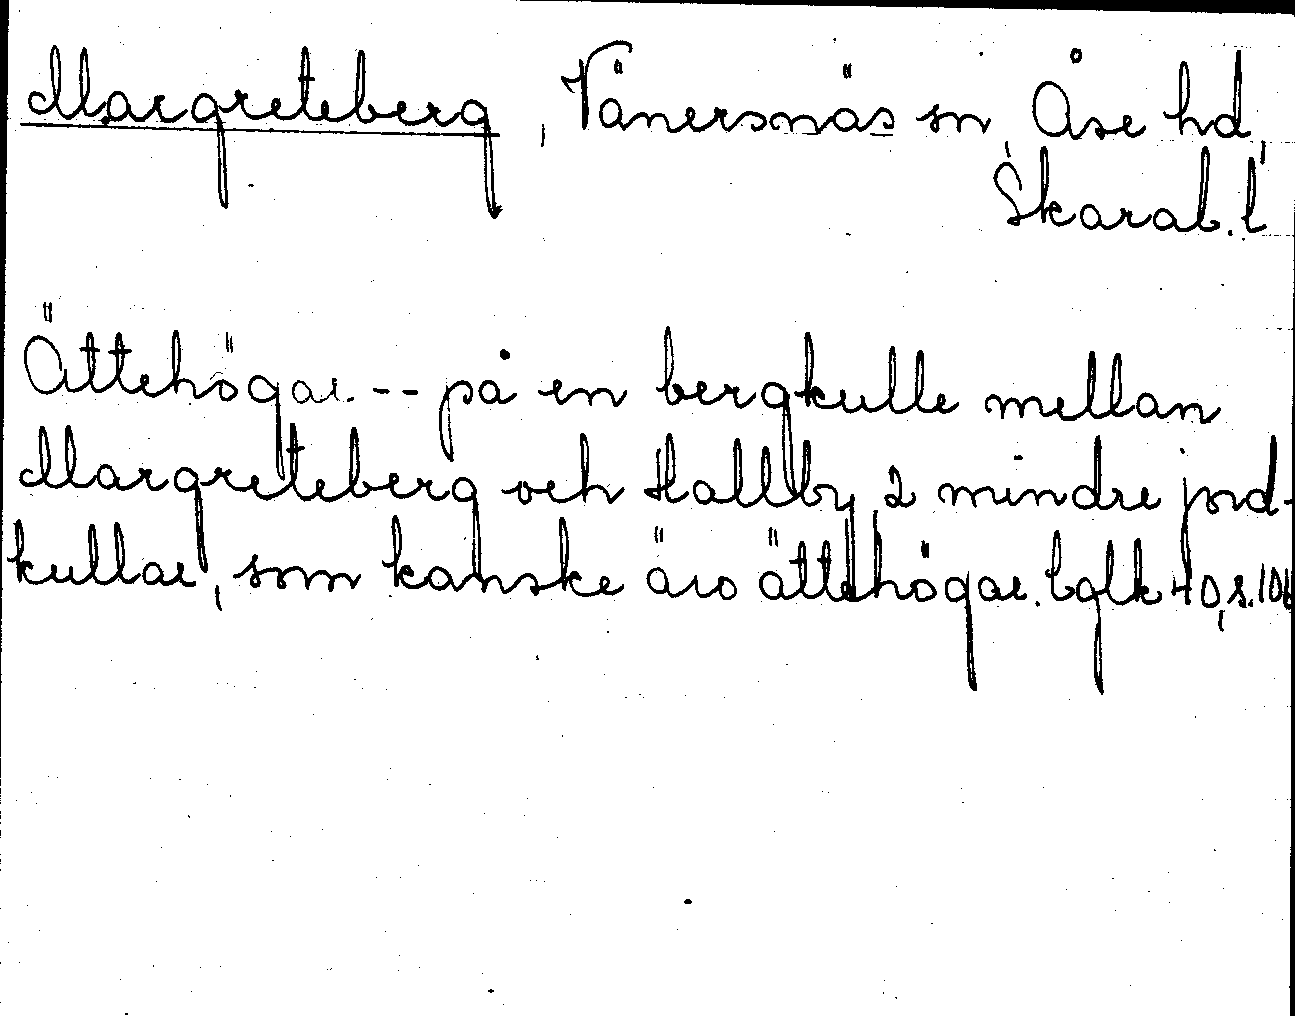 Margreteberg, Vänersnäs sn, Åse hd,
Skarab. l
Ättehögar. -- på en bergkulle mellan
Margreteberg och Hallby 2 mindre jord-
kullar, som kanske äro ättehögar. bglk 40, s. 106